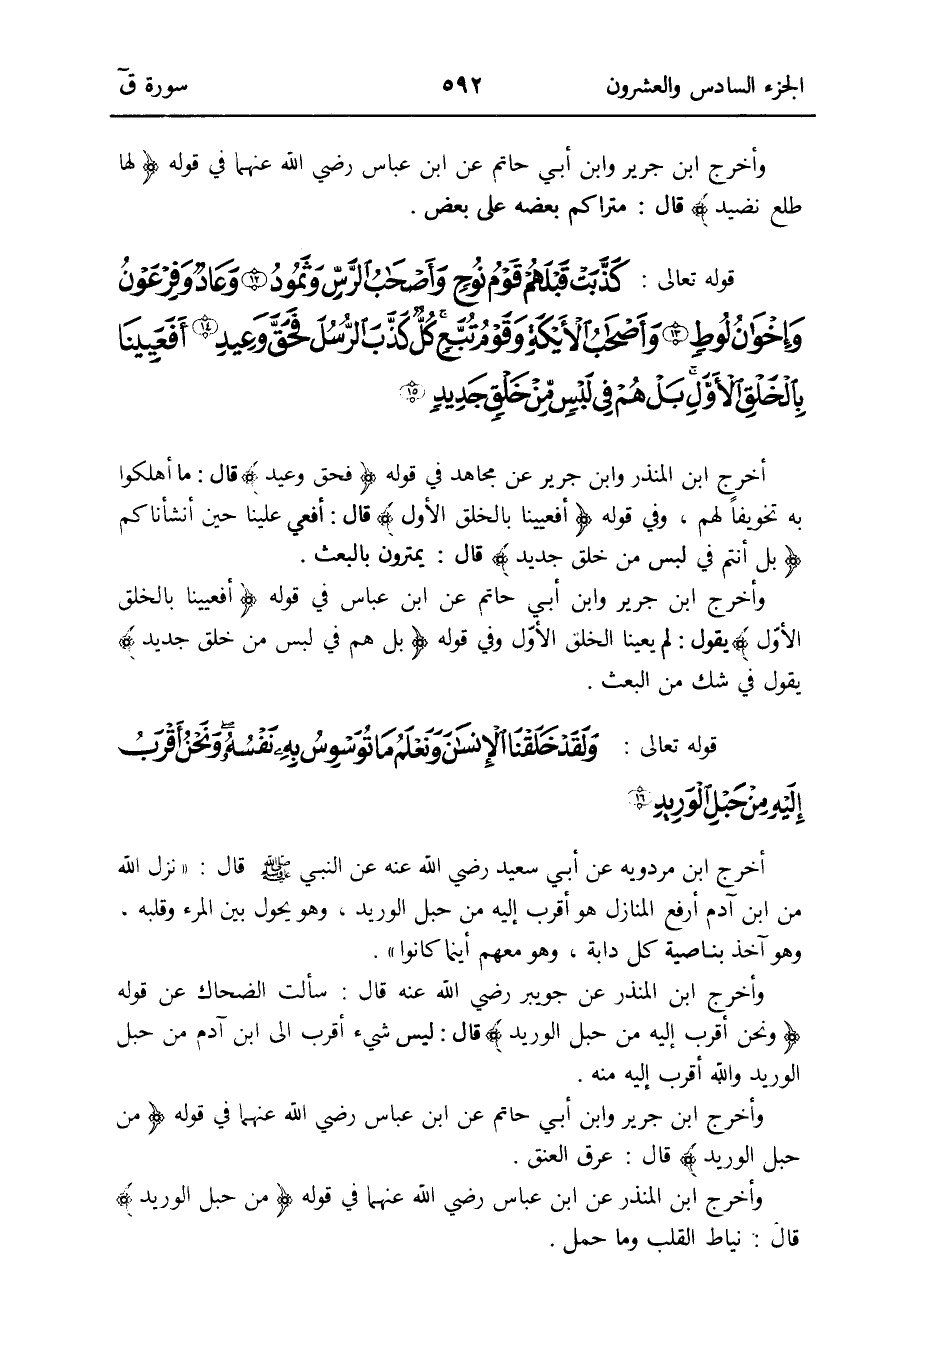 الجزء السادس والعشرون ٥٩٢ سورة قٓ
وأخرج ابن جرير وابن أبي حاتم عن ابن عباس رضي الله عنهما في قوله ﴿ لها
طلع نضيد ﴾ قال : متراكم بعضه على بعض .
قوله تعالى : كَذَّبَتْ قَبْلَهُمْ قَوْمُ نُوحٍ وَأَصْحَٰبُ ٱلرَّسِّ وَثَمُودُ ١٢ وَعَادٌ وَفِرْعَوْنُ
وَإِخْوَٰنُ لُوطٍ ١٣ وَأَصْحَٰبُ ٱلْأَيْكَةِ وَقَوْمُ تُبَّعٍ ۚ كُلٌّ كَذَّبَ ٱلرُّسُلَ فَحَقَّ وَعِيدِ ١٤ أَفَعَيِينَا
بِٱلْخَلْقِ ٱلْأَوَّلِ ۚ بَلْ هُمْ فِى لَبْسٍ مِّنْ خَلْقٍ جَدِيدٍ ١٥
أخرج ابن المنذر وابن جرير عن مجاهد في قوله ﴿ فحق وعيد ﴾ قال : ما أهلكوا
به تخويفاً لهم ، وفي قوله ﴿ أفعيينا بالخلق الأول ﴾ قال : أفعي علينا حين أنشأناكم
﴿ بل أنتم في لبس من خلق جديد ﴾ قال : يمترون بالبعث .
وأخرج ابن جرير وابن أبي حاتم عن ابن عباس في قوله ﴿ أفعيينا بالخلق
الأوّل ﴾ يقول : لم يعينا الخلق الأوّل وفي قوله ﴿ بل هم في لبس من خلق جديد ﴾
يقول في شك من البعث .
قوله تعالى : وَلَقَدْ خَلَقْنَا ٱلْإِنسَٰنَ وَنَعْلَمُ مَا تُوَسْوِسُ بِهِۦ نَفْسُهُۥ ۖ وَنَحْنُ أَقْرَبُ
إِلَيْهِ مِنْ حَبْلِ ٱلْوَرِيدِ ١٦
أخرج ابن مردويه عن أبي سعيد رضي الله عنه عن النبي ﷺ قال : « نزل الله
من ابن آدم أرفع المنازل هو أقرب إليه من حبل الوريد ، وهو يحول بين المرء وقلبه .
وهو آخذ بناصية كل دابة ، وهو معهم أينما كانوا » .
وأخرج ابن المنذر عن جويبر رضي الله عنه قال : سألت الضحاك عن قوله
﴿ ونحن أقرب إليه من حبل الوريد ﴾ قال : ليس شيء أقرب الى ابن آدم من حبل
الوريد والله أقرب إليه منه .
وأخرج ابن جرير وابن أبي حاتم عن ابن عباس رضي الله عنهما في قوله ﴿ من
حبل الوريد ﴾ قال : عرق العنق .
وأخرج ابن المنذر عن ابن عباس رضي الله عنهما في قوله ﴿ من حبل الوريد ﴾
قال : نياط القلب وما حمل .